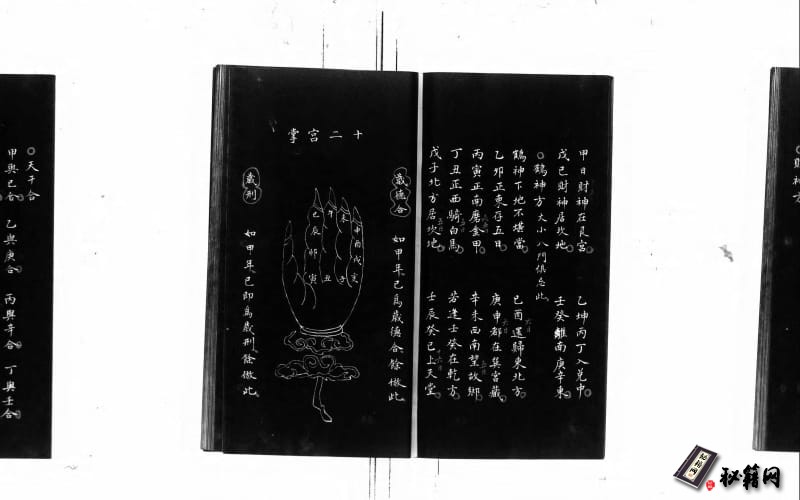 財神方
甲日財神在艮宮 乙坤丙丁入兌中
戊己財神居坎地 壬癸離南庚辛東
○鶴神方 大小八門俱忌此
鶴神下地不堪當 己酉還歸東北方
乙卯正東存五日 庚申都在巽宮藏
丙寅正南磨金甲 辛未西南望故鄉
丁丑正西騎白馬 若逢壬癸在乾方
戊子北方居坎地 壬辰癸巳上天堂
十二宮掌
歲德合
如甲年己為歲德合餘倣此
巳 午 未 申
辰 酉
卯 戌
寅 丑 子 亥
歲刑
如甲年巳即為歲刑餘倣此
○天干合
甲與己合 乙與庚合 丙與辛合 丁與壬合
秘籍网